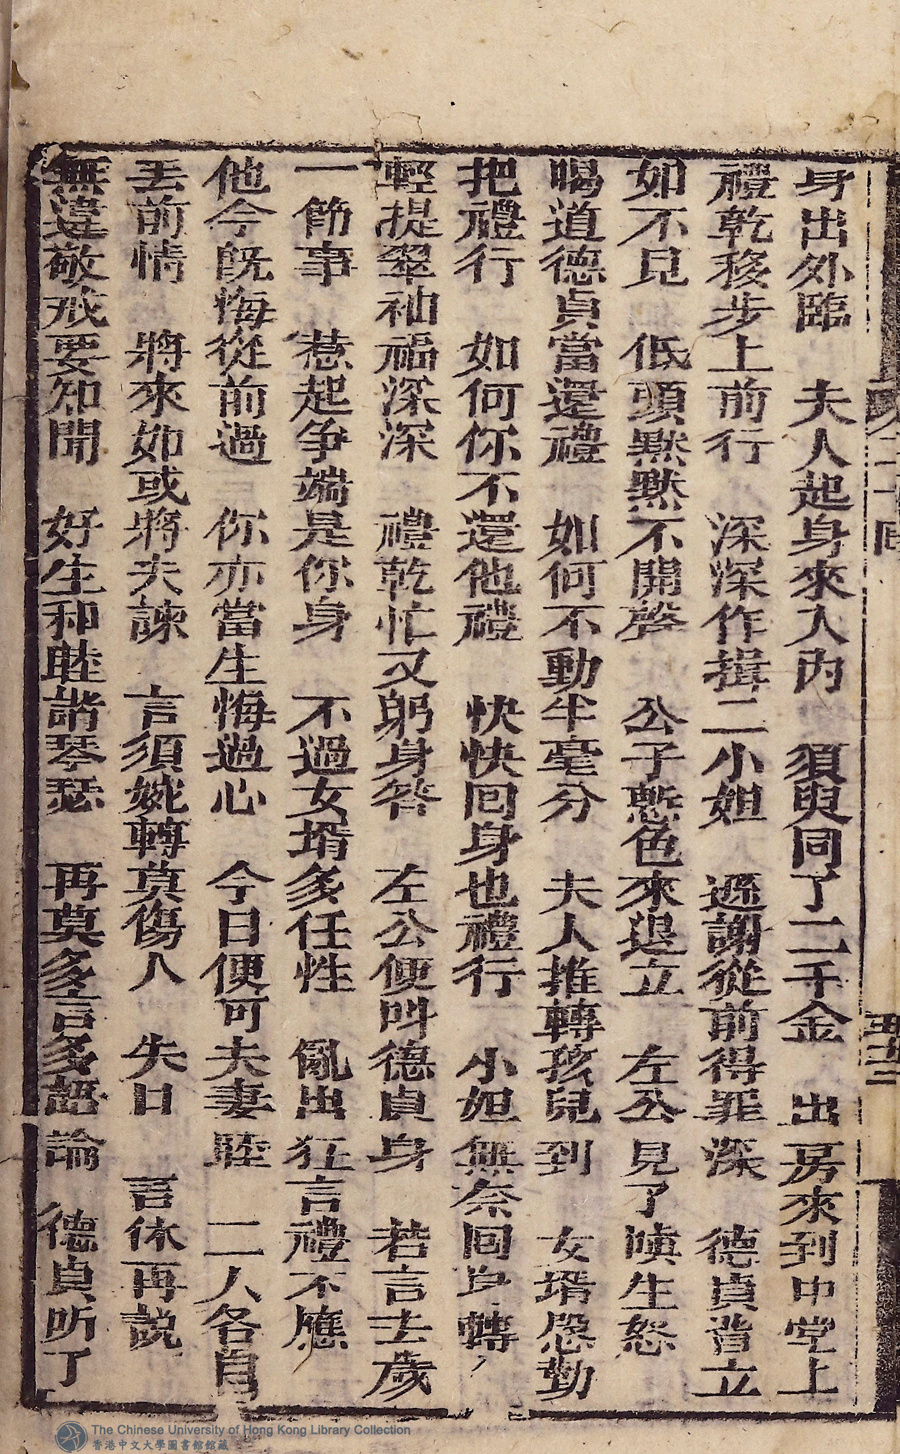 身出外臨　夫人起身來入內　須臾同了二千金　出房來到中堂上
禮乾移步上前行　深深作揖二小姐　遜謝從前得罪深　德貞背立
如不見　低頭黙黙不開聲　公子慙色來退立　左公見了嗔生怒
喝道德貞當還禮　如何不動半毫分　夫人推轉孩兒到　女壻慇勤
把禮行　如何你不還他禮　快快回身也禮行　小姐無奈回身轉
輕提翠袖福深深　禮乾忙又躬身答　左公便呌德貞身　若言去歲
一節事　惹起争端是你身　不過女壻多任性　亂出狂言禮不應
他今旣悔從前過　你亦當生悔過心　今日便可夫妻睦　二人各自
丟前情　將來如或將夫諫　言須婉轉莫傷人　失口　言休再說
無違敬戒要知聞　好生和睦諧琴瑟　再莫多言多語論　德貞听了
二十回
五十二
The Chinese University of Hong Kong Library Collection
香港中文大學圖書館館藏